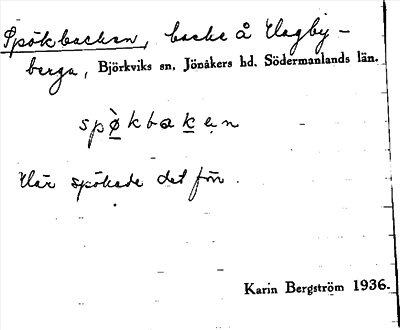 Spökbacken, backe å Hagby-
berga, Björkviks sn. Jönåkers hd. Södermanlands län.
spø̀kbakɐn
Här spökade det förr.
Karin Bergström 1936.